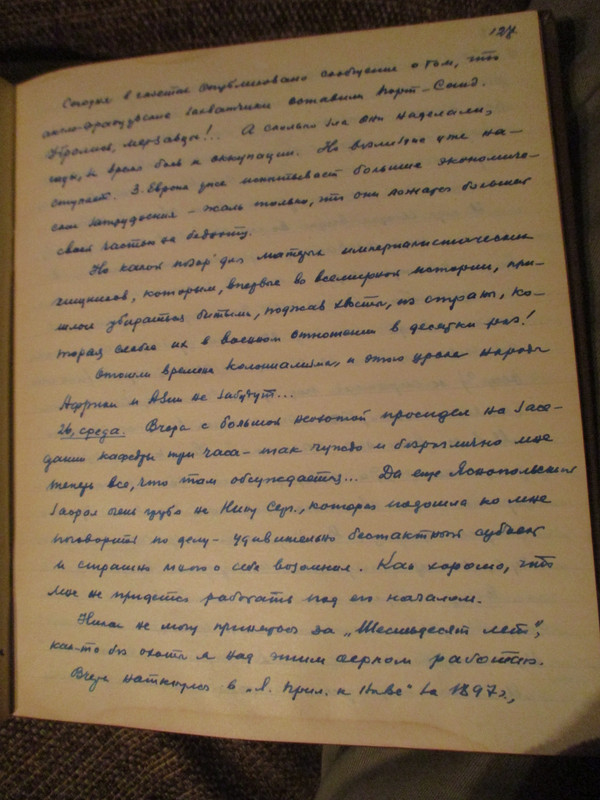 127
Сегодня в газетах опубликовано сообщение о том, что
англо-французские захватчики оставили Порт-Саид.
Убрались, мерзавцы!.. А сколько зла они наделали,
гады, за время боев и оккупации. Но возмездие уже на-
ступает. З. Европа уже испытывает большие экономиче-
ские затруднения – жаль только, что они ложатся большей
своей частью на бедноту.
Но какой позор для матерых империалистических
хищников, которым, впервые во всемирной истории, при-
шлось убираться битыми, поджав хвосты, из страны, ко-
торая слабее их в военном отношении в десятки раз!
Отошли времена колониализма, и этого урока народы
Африки и Азии не забудут...
26, среда. Вчера с большой неохотой просидел на засе-
дании кафедры три часа – так чуждо и безразлично мне
теперь все, что там обсуждается... Да еще Яснопольский
заорал очень грубо на Нину Серг., которая подошла ко мне
поговорить по делу – удивительно бестактный субъект
и страшно много о себе возомнил. Как хорошо, что
мне не придется работать под его началом.
Никак не могу приняться за „Шестьдесят лет",
как-то без охоты я над этим делом работаю.
Вчера наткнулся в „Л. Прил. к Ниве" за 1897 г.,